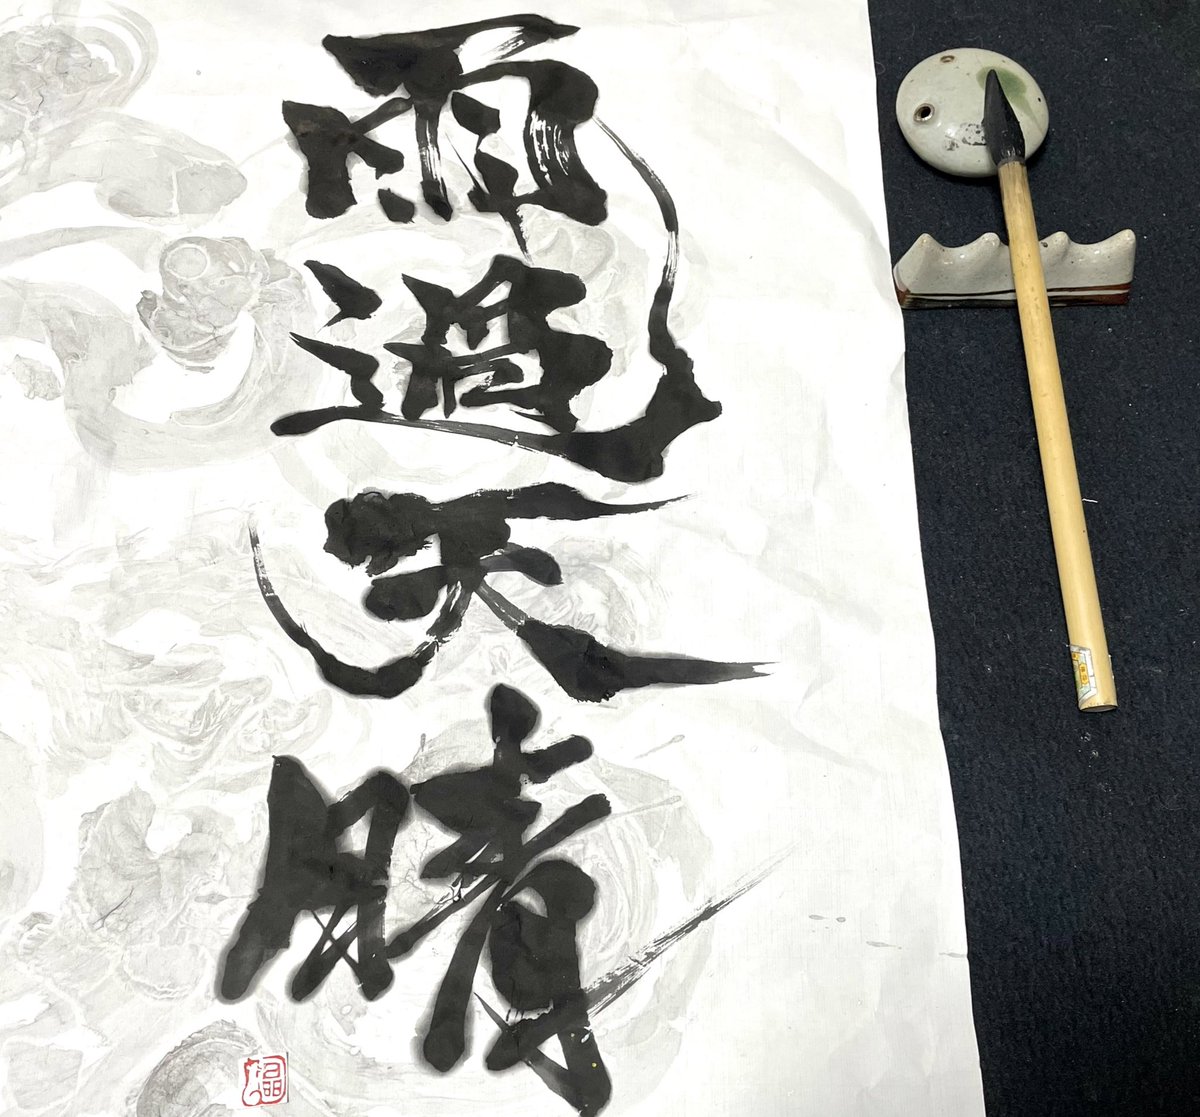 雨過天晴